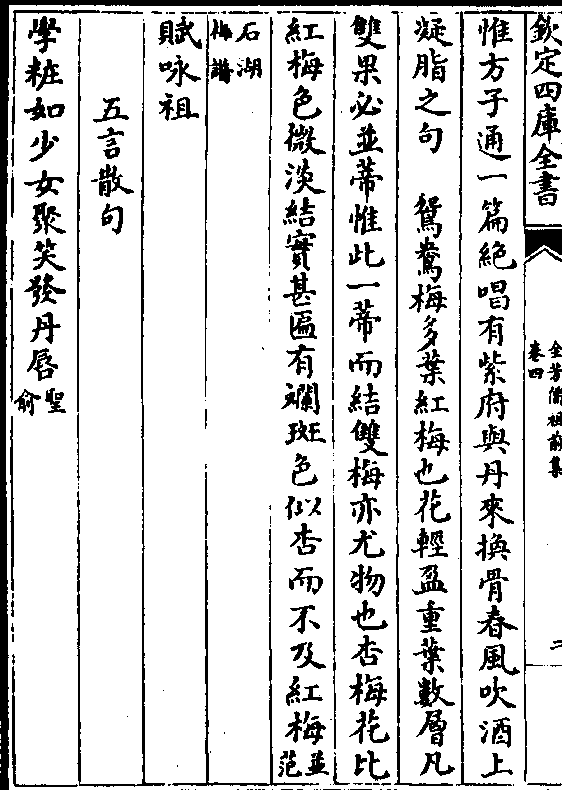 欽定四庫全書
全芳備祖前集
卷四
二
惟方子通一篇絶唱有紫府與丹來換骨春風吹酒上
凝脂之句　鴛鴦梅多葉紅梅也花輕盈重葉數層凡
雙果必並蒂惟此一蒂而結雙梅亦尤物也杏梅花比
紅梅色微淡結實甚匾有斕斑色似杏而不及紅梅並范
石湖
梅譜
賦咏祖
五言散句
學粧如少女聚笑發丹唇聖俞